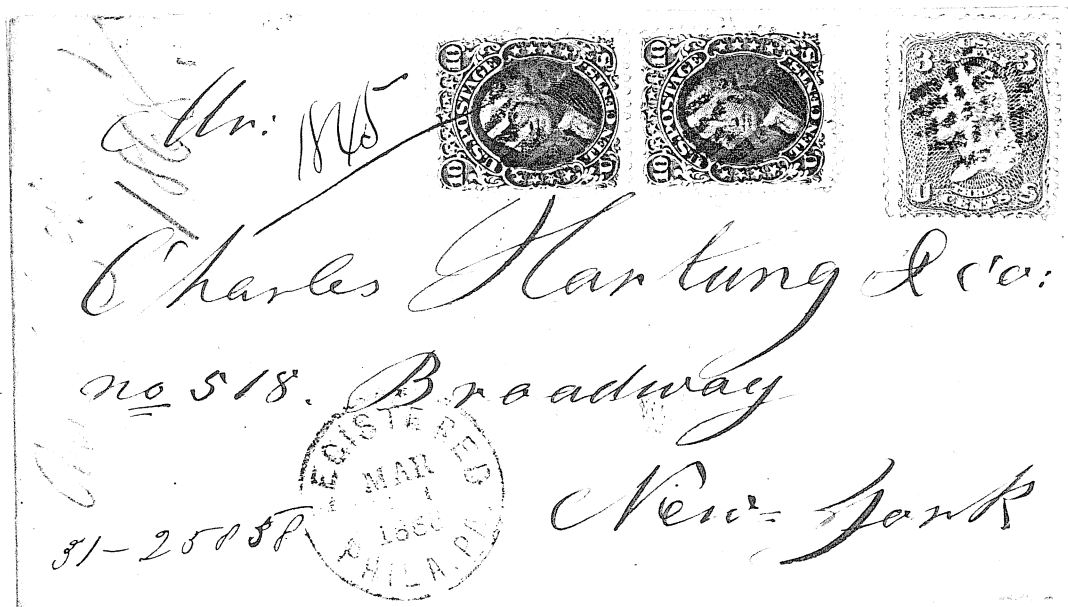 Mr:
1845
10 U.S. POSTAGE TEN CENTS 10
10 U.S. POSTAGE TEN CENTS 10
3 3
U CENTS S
Charles Hartung & Co:
no 518. Broadway
New-York
REGISTERED
MAR
PHILA. PA
31-25858